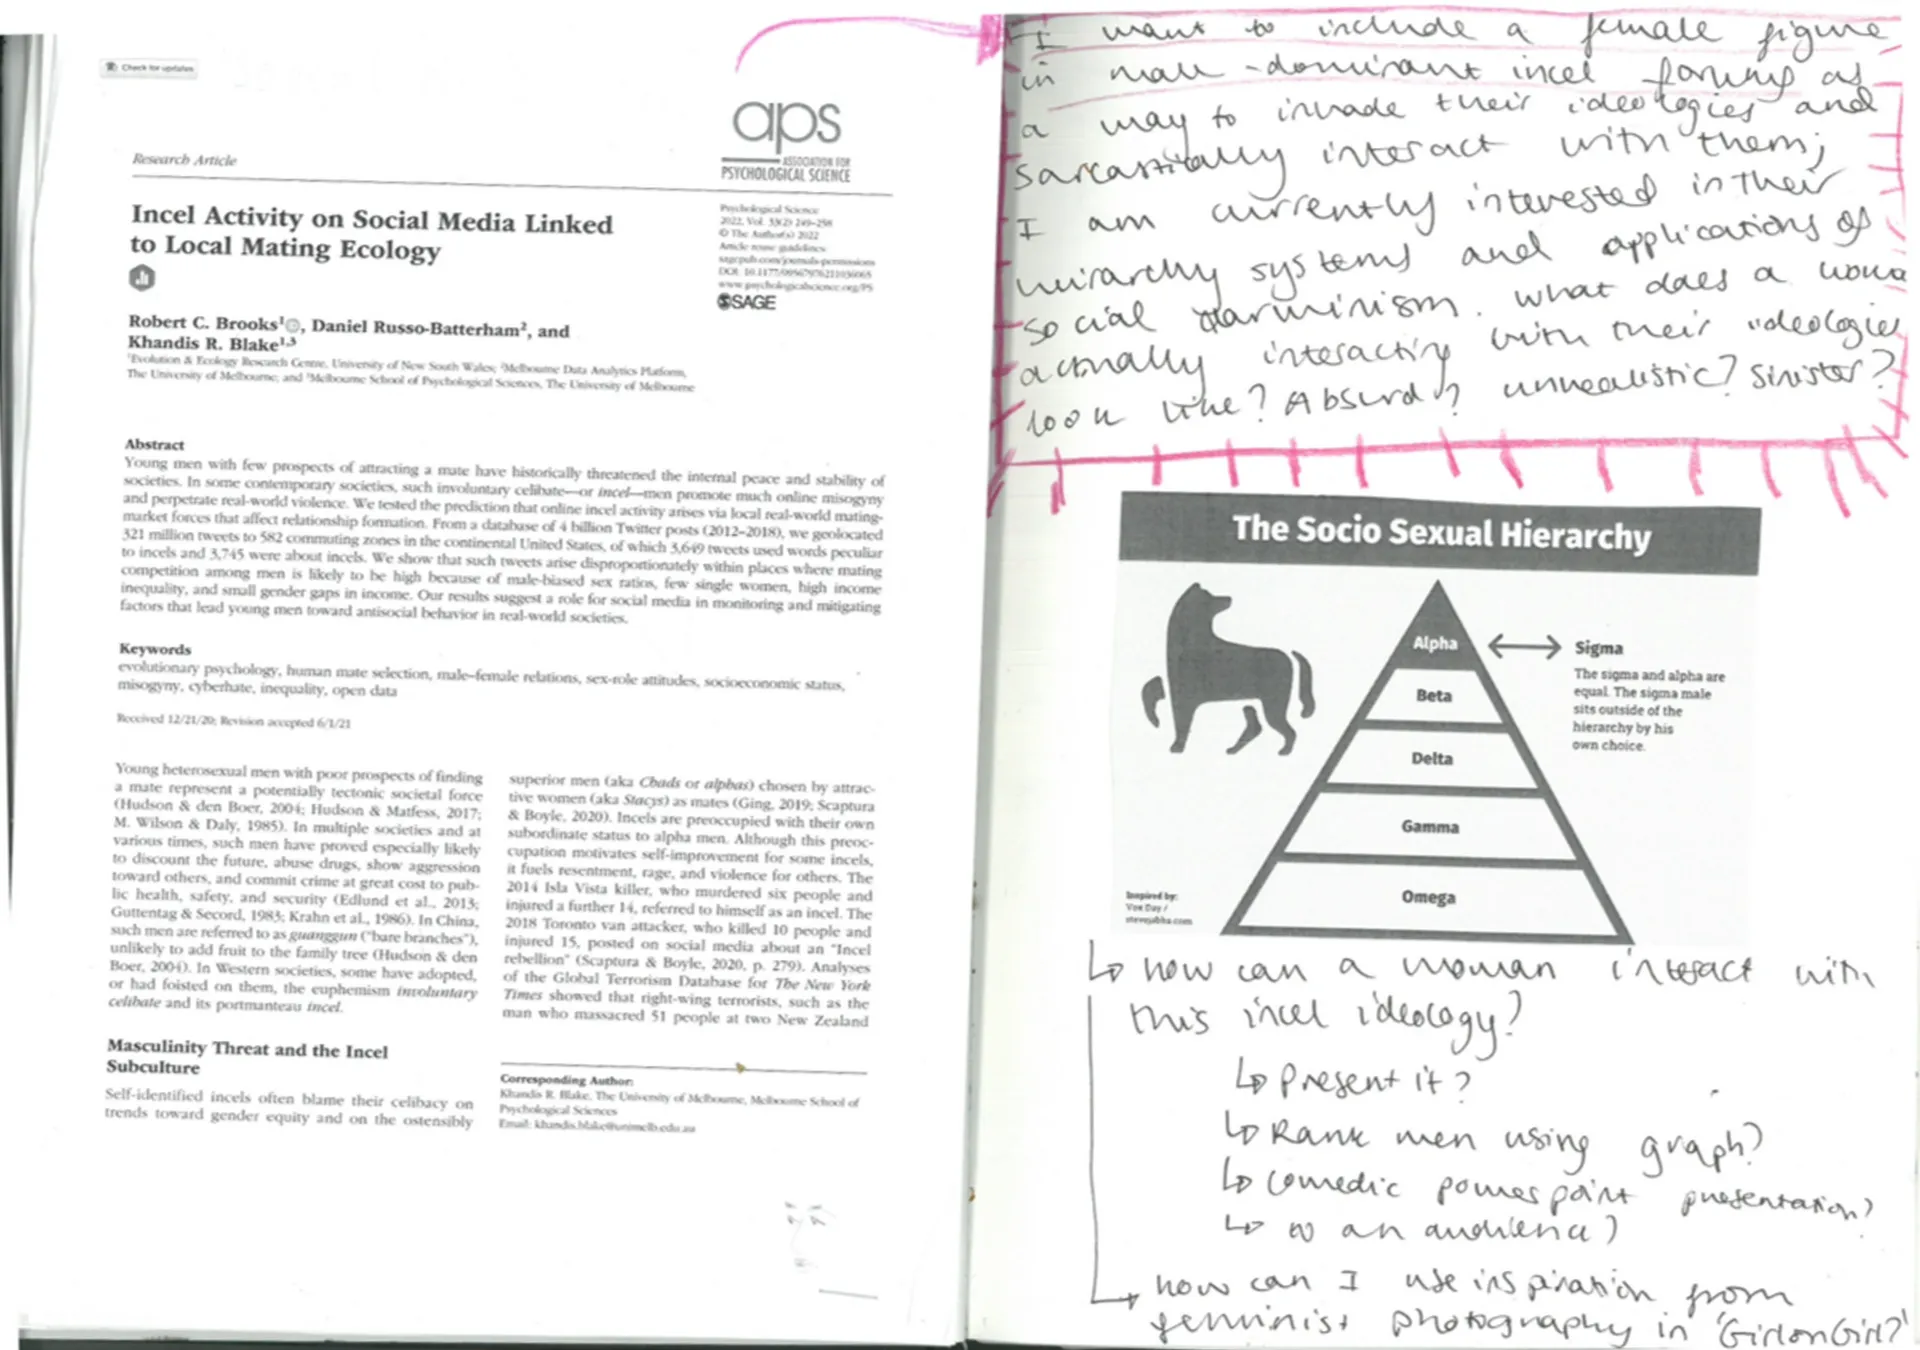 Check for updates
aps
ASSOCIATION FOR
PSYCHOLOGICAL SCIENCE
Research Article
Incel Activity on Social Media Linked
to Local Mating Ecology
Psychological Science
2022, Vol. 33(2) 249–258
© The Author(s) 2022
Article reuse guidelines:
sagepub.com/journals-permissions
DOI: 10.1177/09567976211036065
www.psychologicalscience.org/PS
SAGE
Robert C. Brooks¹, Daniel Russo-Batterham², and
Khandis R. Blake¹,³
¹Evolution & Ecology Research Centre, University of New South Wales; ²Melbourne Data Analytics Platform,
The University of Melbourne; and ³Melbourne School of Psychological Sciences, The University of Melbourne
Abstract
Young men with few prospects of attracting a mate have historically threatened the internal peace and stability of
societies. In some contemporary societies, such involuntary celibate—or incel—men promote much online misogyny
and perpetrate real-world violence. We tested the prediction that online incel activity arises via local real-world mating-
market forces that affect relationship formation. From a database of 4 billion Twitter posts (2012–2018), we geolocated
321 million tweets to 582 commuting zones in the continental United States, of which 3,649 tweets used words peculiar
to incels and 3,745 were about incels. We show that such tweets arise disproportionately within places where mating
competition among men is likely to be high because of male-biased sex ratios, few single women, high income
inequality, and small gender gaps in income. Our results suggest a role for social media in monitoring and mitigating
factors that lead young men toward antisocial behavior in real-world societies.
Keywords
evolutionary psychology, human mate selection, male–female relations, sex-role attitudes, socioeconomic status,
misogyny, cyberhate, inequality, open data
Received 12/21/20; Revision accepted 6/1/21
Young heterosexual men with poor prospects of finding
a mate represent a potentially tectonic societal force
(Hudson & den Boer, 2004; Hudson & Matfess, 2017;
M. Wilson & Daly, 1985). In multiple societies and at
various times, such men have proved especially likely
to discount the future, abuse drugs, show aggression
toward others, and commit crime at great cost to pub-
lic health, safety, and security (Edlund et al., 2013;
Guttentag & Secord, 1983; Krahn et al., 1986). In China,
such men are referred to as guanggun ("bare branches"),
unlikely to add fruit to the family tree (Hudson & den
Boer, 2004). In Western societies, some have adopted,
or had foisted on them, the euphemism involuntary
celibate and its portmanteau incel.
Masculinity Threat and the Incel
Subculture
Self-identified incels often blame their celibacy on
trends toward gender equity and on the ostensibly
superior men (aka Chads or alphas) chosen by attrac-
tive women (aka Stacys) as mates (Ging, 2019; Scaptura
& Boyle, 2020). Incels are preoccupied with their own
subordinate status to alpha men. Although this preoc-
cupation motivates self-improvement for some incels,
it fuels resentment, rage, and violence for others. The
2014 Isla Vista killer, who murdered six people and
injured a further 14, referred to himself as an incel. The
2018 Toronto van attacker, who killed 10 people and
injured 15, posted on social media about an "Incel
rebellion" (Scaptura & Boyle, 2020, p. 279). Analyses
of the Global Terrorism Database for The New York
Times showed that right-wing terrorists, such as the
man who massacred 51 people at two New Zealand
Corresponding Author:
Khandis R. Blake, The University of Melbourne, Melbourne School of
Psychological Sciences
Email: khandis.blake@unimelb.edu.au
I want to include a female figure
in male-dominant incel forums as
a way to invade their ideologies and
sarcastically interact with them;
I am currently interested in their
hierarchy systems and applications of
social darwinism. What does a woma
actually interacting with their ideologies
look like? Absurd? unrealistic? Sinister?
The Socio Sexual Hierarchy
Alpha
Beta
Delta
Gamma
Omega
Sigma
The sigma and alpha are
equal. The sigma male
sits outside of the
hierarchy by his
own choice.
Inspired by:
Vox Day /
stevejabba.com
↳ How can a woman interact with
this incel ideology?
↳ Present it?
↳ Rank men using graph?
↳ Comedic powerpoint presentation?
↳ to an audience?
↳ How can I use inspiration from
feminist photography in 'Girl on Girl?'